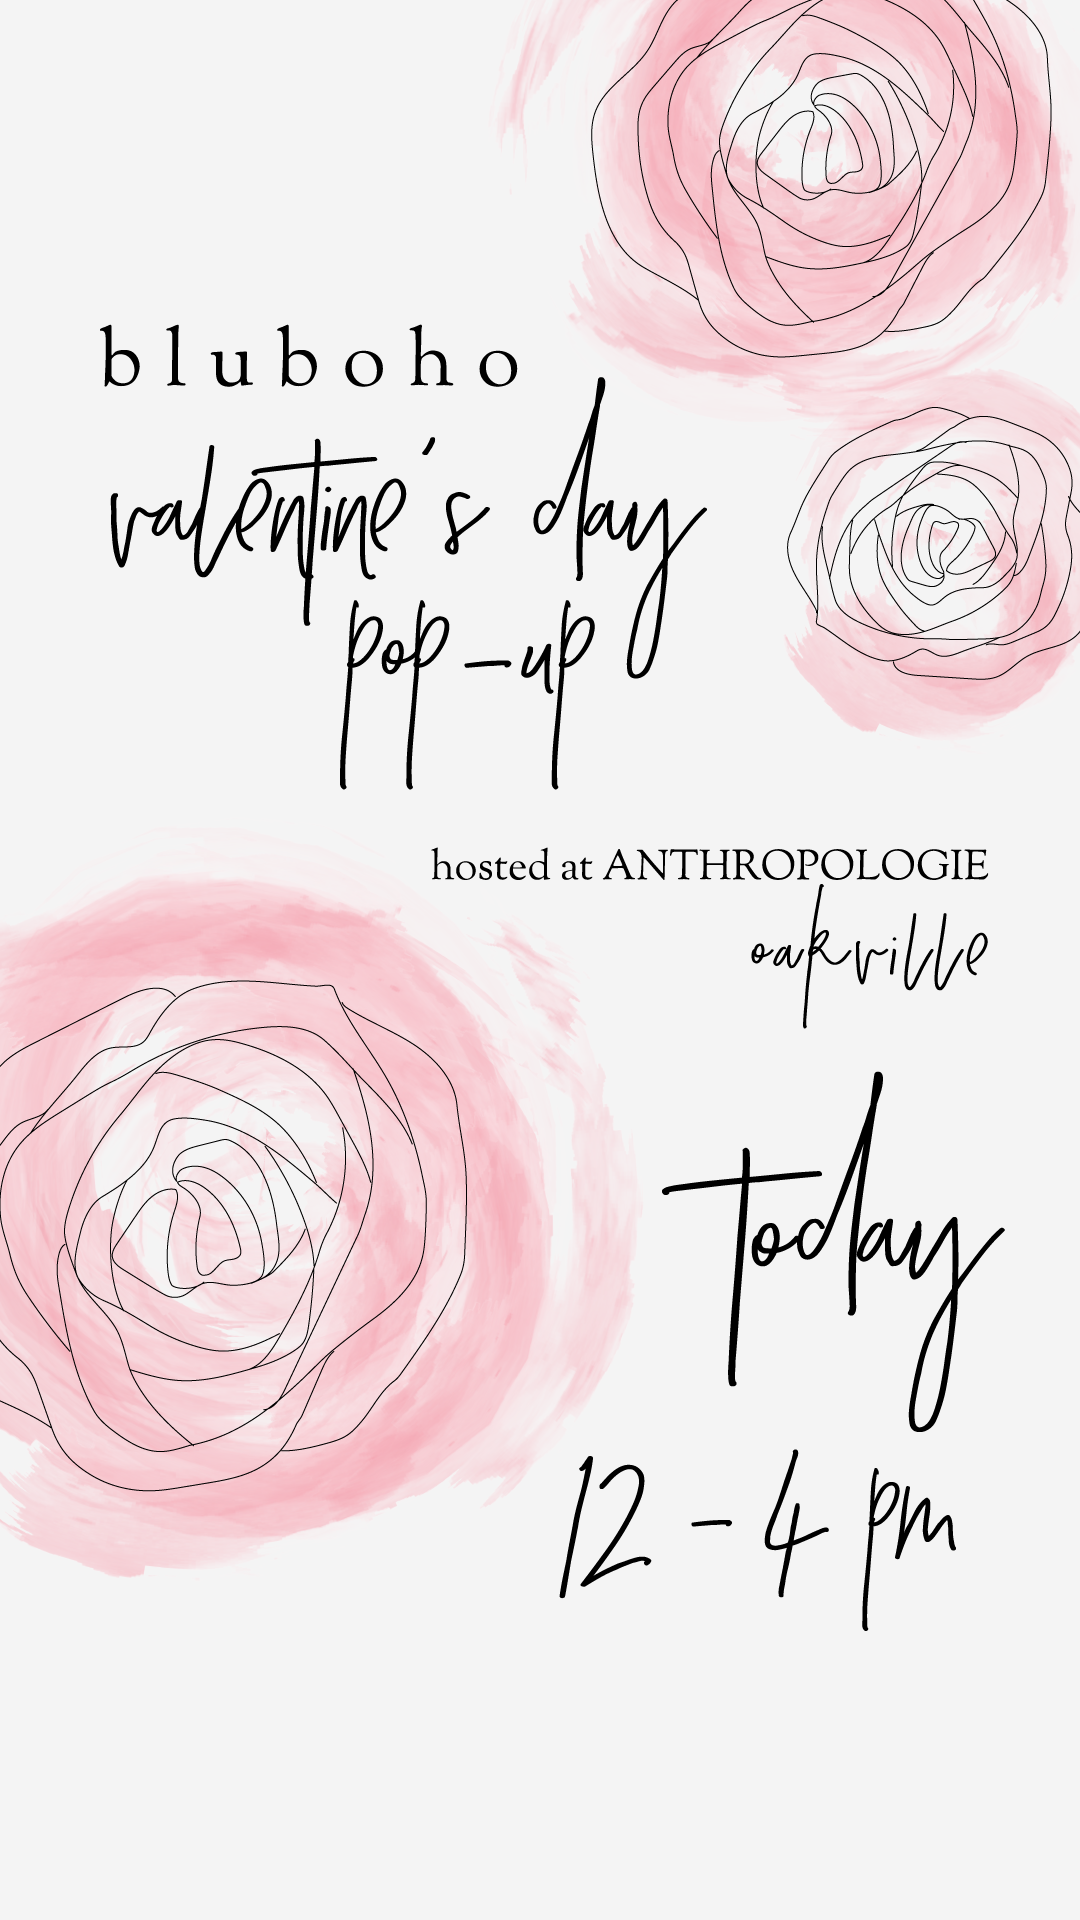 bluboho
valentine's day
pop-up
hosted at ANTHROPOLOGIE
oakville
today
12 - 4 pm